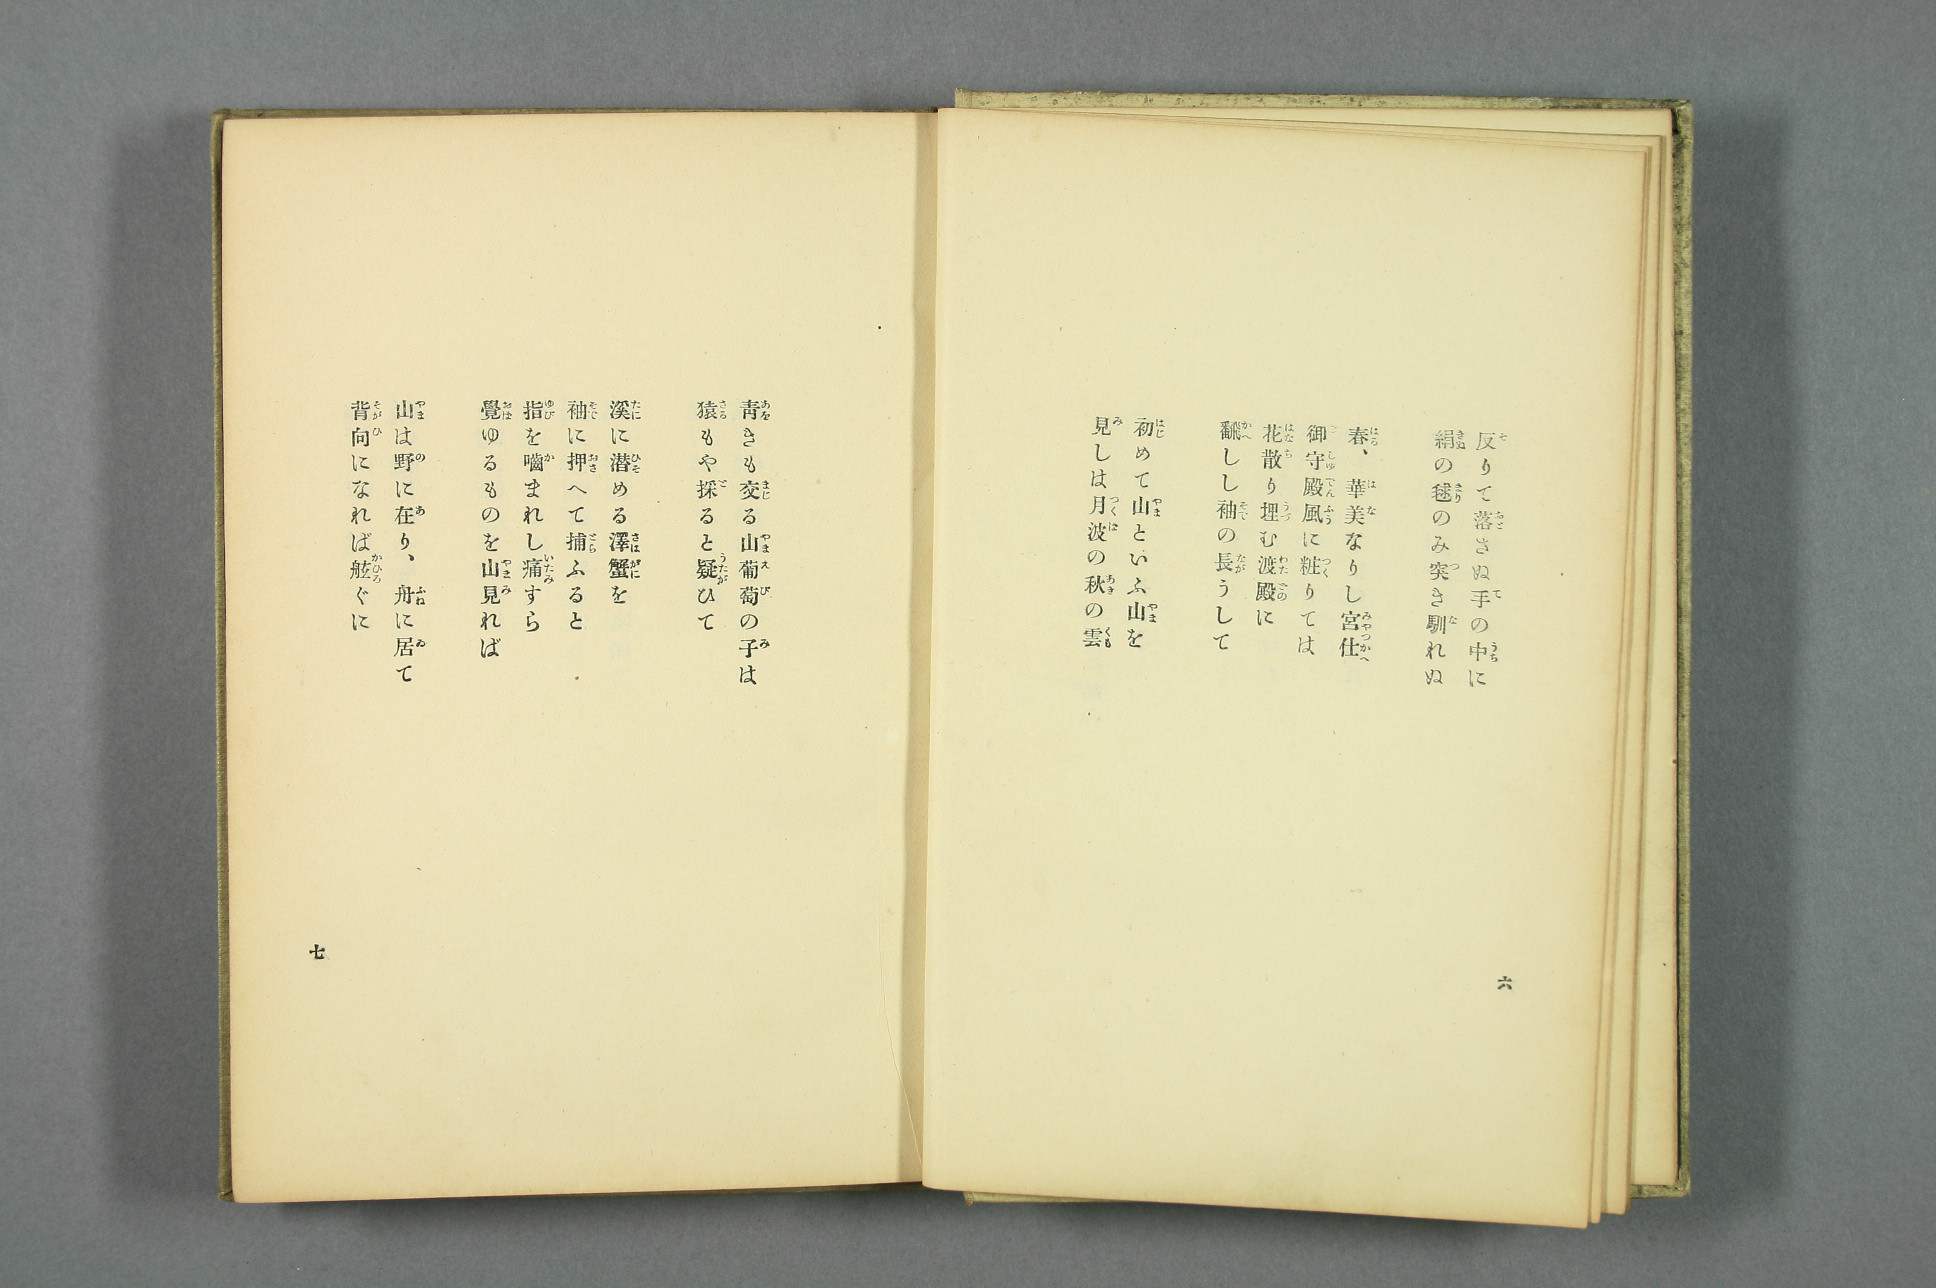 反りて落さぬ手の中に
絹の毬のみ突き馴れぬ
春、華美なりし宮仕
御守殿風に粧りては
花散り埋む渡殿に
飜しし袖の長うして
初めて山といふ山を
見しは月波の秋の雲
六
青きも交る山葡萄の子は
猿もや採ると疑ひて
溪に潜める澤蟹を
袖に押へて捕ふると
指を嚙まれし痛すら
覺ゆるものを山見れば
山は野に在り、舟に居て
背向になれば舷ぐに
七